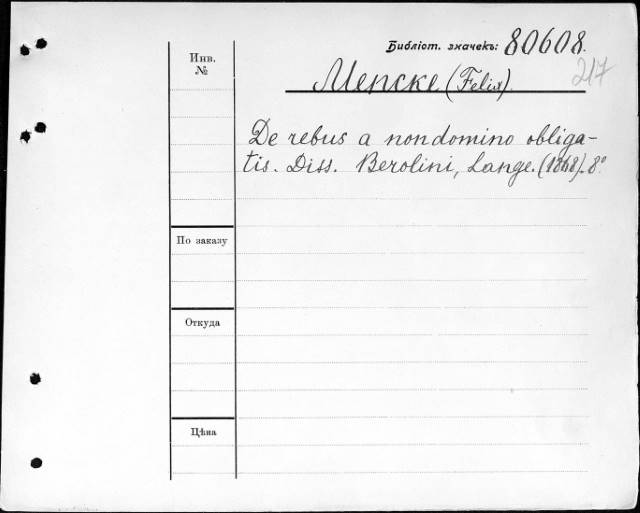 Библіот. значекъ: 80608.
217
Инв.
№
Mencke (Felix).
De rebus a non domino obliga-
tis. Diss. Berolini, Lange. (1868). 8º
По заказу
Откуда
Цѣна